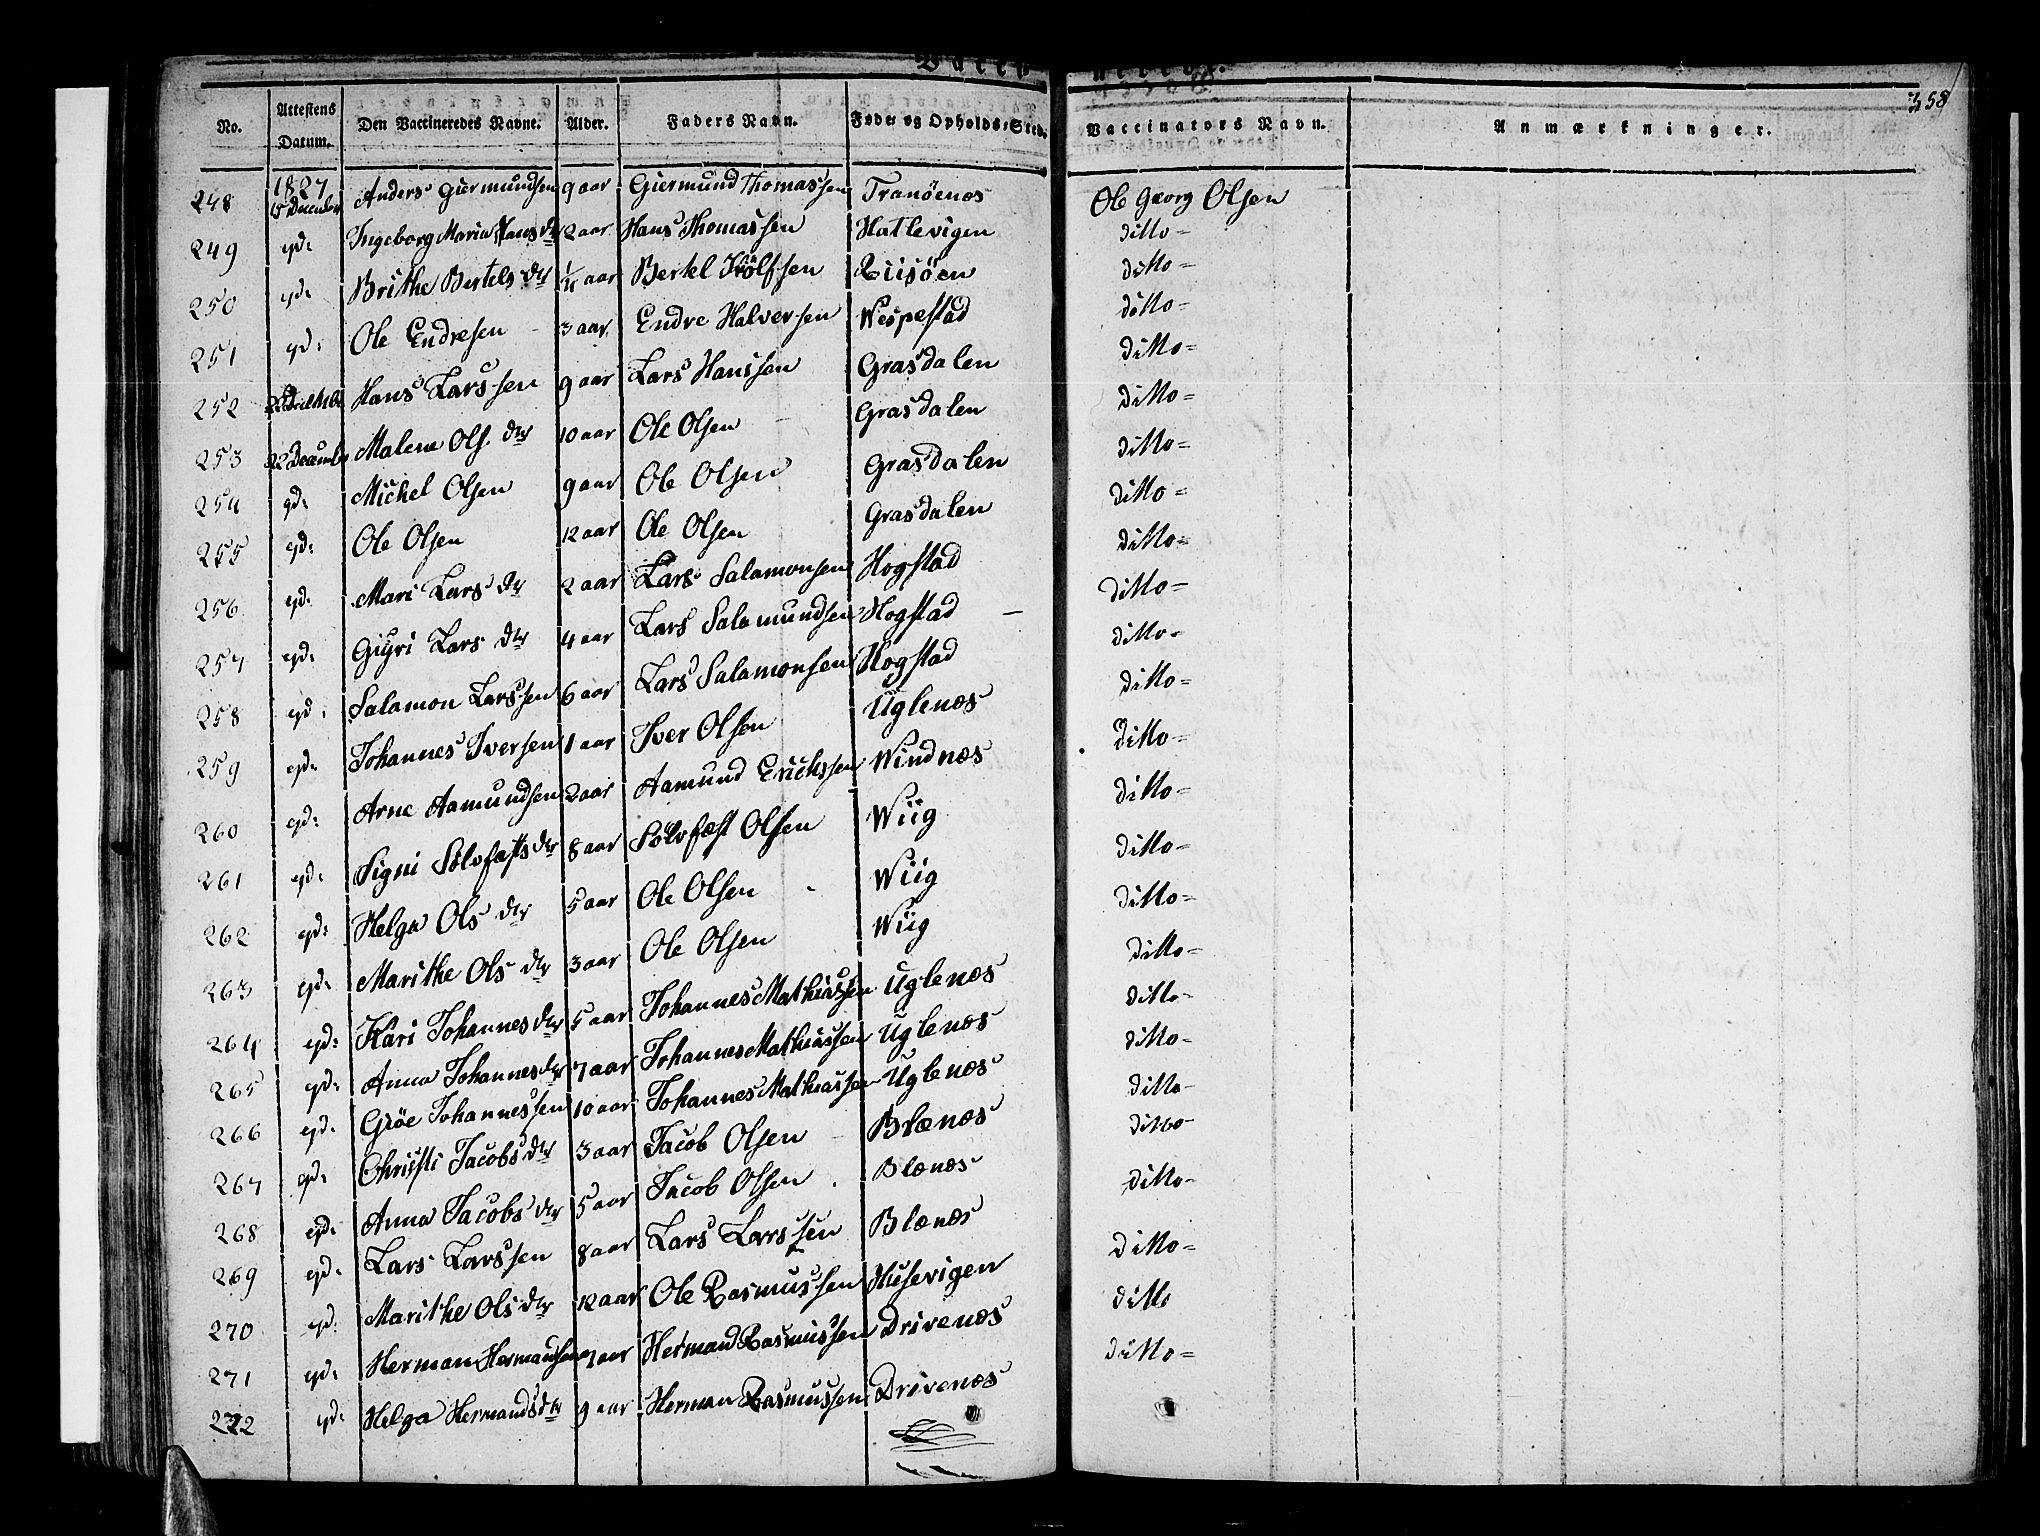 358
No. Attestens Datum. Den Vaccineredes Navne. Alder. Faders Navn. Føde- og Opholds-Sted. Vaccinators Navn. Anmærkninger.
1827
248 15 December Anders Giermundsen 9 aar Giermund Thomassen Tranöenæs Ole Georg Olsen
249 gd: Ingeborg Maria Hans dtr 2 aar Hans Thomassen Hatlevigen ditto
250 gd: Brithe Bertels dtr aar Bertel Riisöen ditto
251 gd: Ole Endresen 3 aar Endre Halversen Wespestad ditto
252 Hans Larssen 9 aar Lars Hanssen Grasdalen ditto
253 22 December Malene Ols dtr 10 aar Ole Olsen Grasdalen ditto
254 gd: Michel Olsen 9 aar Ole Olsen Grasdalen ditto
255 gd: Ole Olsen 12 aar Ole Olsen Grasdalen ditto
256 gd: Mari Lars dtr 2 aar Lars Salamonsen Hogstad ditto
257 gd: Giyri Lars dtr 4 aar Lars Salamundsen Hogstad ditto
258 gd: Salamon Larssen 6 aar Lars Salamonsen Hogstad ditto
259 gd: Johannes Iversen 1 aar Iver Olsen Uglenæs ditto
260 gd: Arne Aamundsen 2 aar Aamund Erichssen Windnæs ditto
261 gd: Signi Sölvfæsts dtr 8 aar Sölvfæst Olsen Wiig ditto
262 gd: Helga Ols dtr 5 aar Ole Olsen Wiig ditto
263 gd: Marithe Ols dtr 3 aar Ole Olsen Wiig ditto
264 gd: Kari Johannes dtr 5 aar Johannes Mathiassen Uglenæs ditto
265 gd: Anna Johannes dtr 7 aar Johannes Mathiassen Uglenæs ditto
266 gd: Gröe Johannessen 10 aar Johannes Mathiassen Uglenæs ditto
267 gd: Christi Jacobs dtr 3 aar Jacob Olsen Blænæs ditto
268 gd: Anna Jacobs dtr 5 aar Jacob Olsen Blænæs ditto
269 gd: Lars Larssen 8 aar Lars Larssen Blænæs ditto
270 gd: Marithe Ols dtr 12 aar Ole Rasmussen Husevigen ditto
271 gd: Herman Hermansen 7 aar Hermand Rasmussen Drivenæs ditto
272 gd: Helga Hermands dtr 9 aar Herman Rasmussen Drivenæs ditto